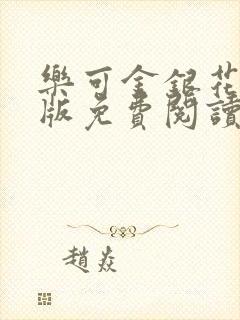 樂可金銀花
版免費閱讀
趙焱